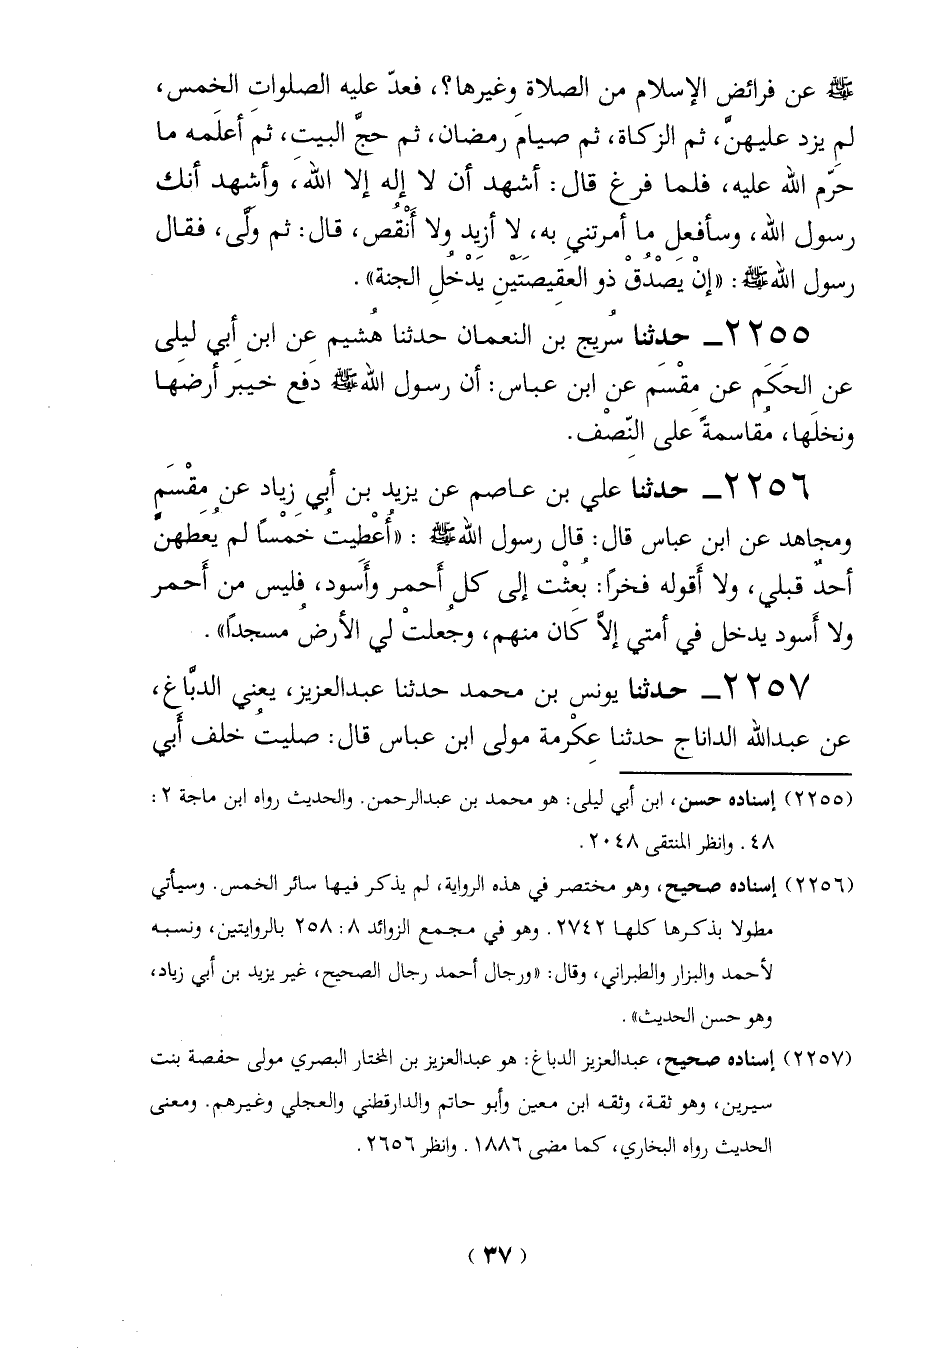 ﷺ عن فرائض الإسلام من الصلاة وغيرها؟، فعدّ عليه الصلوات الخمس،
لم يزد عليهنَّ، ثم الزكاة، ثم صيام رمضان، ثم حجَّ البيت، ثم أعلمه ما
حرَّم الله عليه، فلما فرغ قال: أشهد أن لا إله إلا الله، وأشهد أنك
رسول الله، وسأفعل ما أمرتني به، لا أزيد ولا أَنْقُص، قال: ثم ولَّى، فقال
رسول الله ﷺ: «إنْ يَصْدُقْ ذو العَقِيصَتَيْنِ يَدْخُلِ الجنة».
٢٢٥٥ـ حدثنا سُريج بن النعمان حدثنا هُشيم عن ابن أبي ليلى
عن الحَكَم عن مِقْسَم عن ابن عباس: أن رسول الله ﷺ دفع خيبَر أرضَها
ونخلَها، مُقاسمةً على النِّصْف.
٢٢٥٦ـ حدثنا علي بن عاصم عن يزيد بن أبي زياد عن مِقْسَم
ومجاهد عن ابن عباس قال: قال رسول الله ﷺ : «أُعْطِيتُ خَمْساً لم يُعطَهنَّ
أحدٌ قبلي، ولا أَقوله فخراً: بُعثْت إلى كل أَحمر وأَسود، فليس من أَحمر
ولا أَسود يدخل في أمتي إلاَّ كَان منهم، وجُعلتْ لي الأرضُ مسجداً».
٢٢٥٧ـ حدثنا يونس بن محمد حدثنا عبدالعزيز، يعني الدبَّاغ،
عن عبدالله الداناج حدثنا عِكْرمة مولى ابن عباس قال: صليتُ خلف أَبي
(٢٢٥٥) إسناده حسن، ابن أبي ليلى: هو محمد بن عبدالرحمن. والحديث رواه ابن ماجة ٢:
٤٨. وانظر المنتقى ٢٠٤٨.
(٢٢٥٦) إسناده صحيح، وهو مختصر في هذه الرواية، لم يذكر فيها سائر الخمس. وسيأتي
مطولا بذكرها كلها ٢٧٤٢. وهو في مجمع الزوائد ٨: ٢٥٨ بالروايتين، ونسبه
لأحمد والبزار والطبراني، وقال: «ورجال أحمد رجال الصحيح، غير يزيد بن أبي زياد،
وهو حسن الحديث».
(٢٢٥٧) إسناده صحيح، عبدالعزيز الدباغ: هو عبدالعزيز بن المختار البصري مولى حفصة بنت
سيرين، وهو ثقة، وثقه ابن معين وأبو حاتم والدارقطني والعجلي وغيرهم. ومعنى
الحديث رواه البخاري، كما مضى ١٨٨٦. وانظر ٢٦٥٦.
(٣٧)